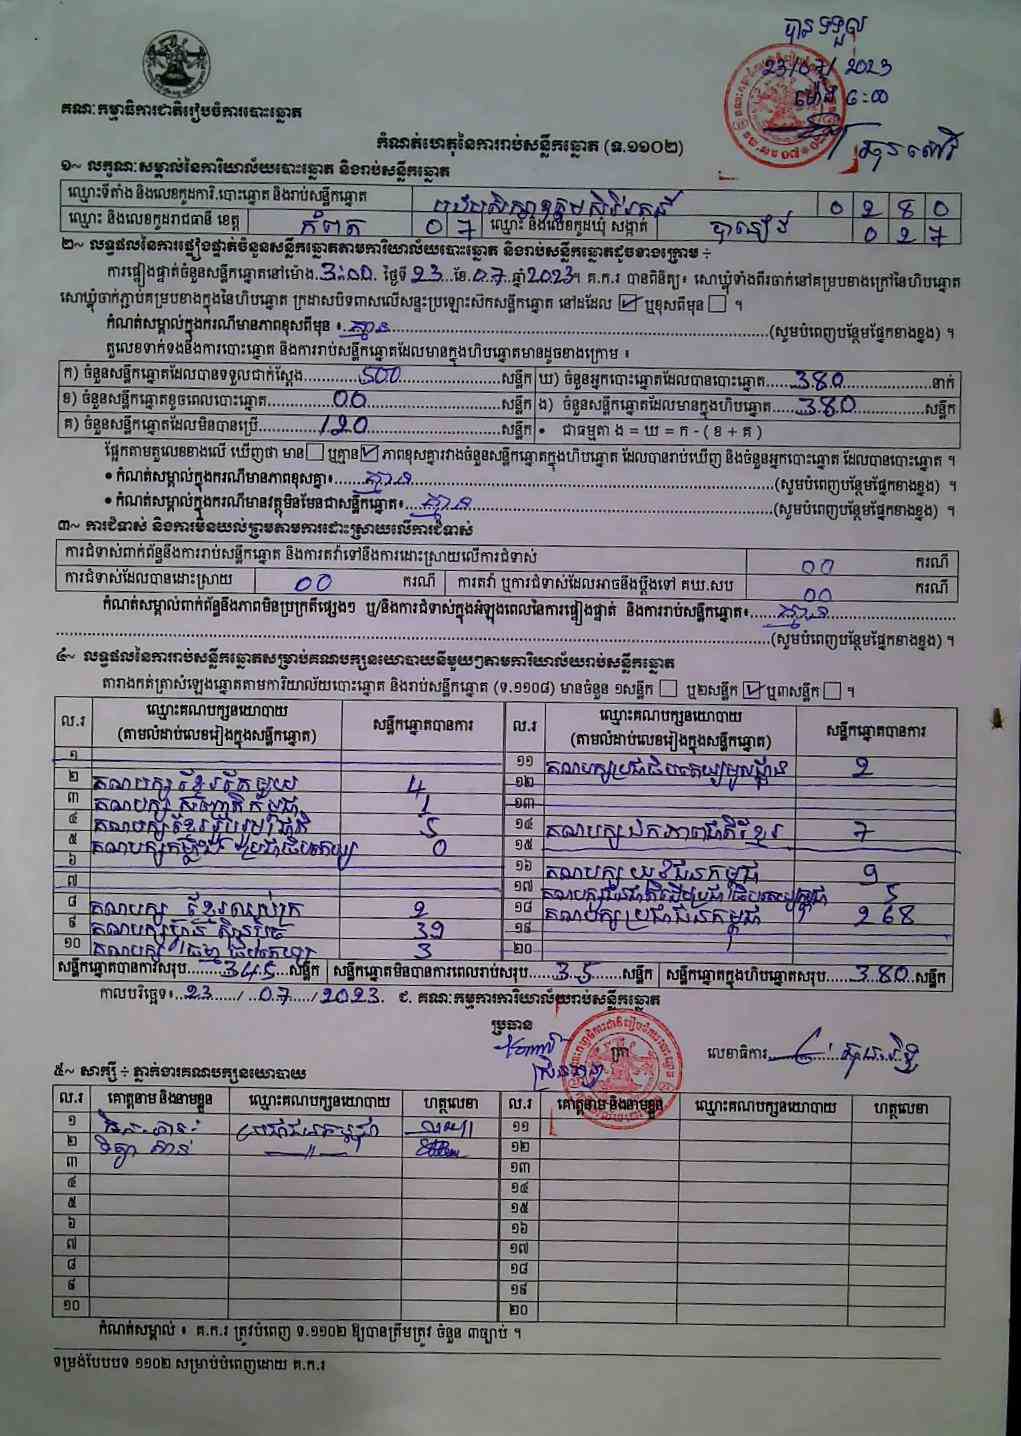 បានទទួល
23/07/2023
ម៉ោង ៤:០០
គណៈកម្មាធិការជាតិរៀបចំការបោះឆ្នោត
កំណត់ហេតុនៃការរាប់សន្លឹកឆ្នោត (ទ.១១០២)
១~ លក្ខណៈសម្គាល់នៃការិយាល័យបោះឆ្នោត និងរាប់សន្លឹកឆ្នោត
ឈ្មោះទីតាំង និងលេខកូដការិ.បោះឆ្នោត និងរាប់សន្លឹកឆ្នោត 0 2 8 0
ឈ្មោះ និងលេខកូដរាជធានី ខេត្ត កំពត 0 7 ឈ្មោះ និងលេខកូដឃុំ សង្កាត់ 0 2 7
២~ លទ្ធផលនៃការផ្ទៀងផ្ទាត់ចំនួនសន្លឹកឆ្នោតតាមការិយាល័យបោះឆ្នោត និងរាប់សន្លឹកឆ្នោតដូចខាងក្រោម ÷
ការផ្ទៀងផ្ទាត់ចំនួនសន្លឹកឆ្នោតនៅម៉ោង.3:00. ថ្ងៃទី 23 .ខែ.07.ឆ្នាំ 2023។ គ.ក.រ បានពិនិត្យ៖ សោឃ្លុំទាំងពីរចាក់នៅគម្របខាងក្រៅនៃហិបឆ្នោត
សោឃ្លុំចាក់ភ្ជាប់គម្របខាងក្នុងនៃហិបឆ្នោត ក្រដាសបិទពាសលើសន្ទះប្រឡោះស៊ីកសន្លឹកឆ្នោត នៅដដែល ☑ ឬខុសពីមុន ☐ ។
កំណត់សម្គាល់ក្នុងករណីមានភាពខុសពីមុន ៖ គ្មាន (សូមបំពេញបន្ថែមផ្នែកខាងខ្នង) ។
តួលេខទាក់ទងនឹងការបោះឆ្នោត និងការរាប់សន្លឹកឆ្នោតដែលមានក្នុងហិបឆ្នោតមានដូចខាងក្រោម ៖
ក) ចំនួនសន្លឹកឆ្នោតដែលបានទទួលជាក់ស្តែង 500 សន្លឹក ឃ) ចំនួនអ្នកបោះឆ្នោតដែលបានបោះឆ្នោត 380 នាក់
ខ) ចំនួនសន្លឹកឆ្នោតខូចពេលបោះឆ្នោត 00 សន្លឹក ង) ចំនួនសន្លឹកឆ្នោតដែលមានក្នុងហិបឆ្នោត 380 សន្លឹក
គ) ចំនួនសន្លឹកឆ្នោតដែលមិនបានប្រើ 120 សន្លឹក • ជាធម្មតា ង = ឃ = ក - ( ខ + គ )
ផ្អែកតាមតួលេខខាងលើ ឃើញថា មាន ☐ ឬគ្មាន ☑ ភាពខុសគ្នារវាងចំនួនសន្លឹកឆ្នោតក្នុងហិបឆ្នោត ដែលបានរាប់ឃើញ និងចំនួនអ្នកបោះឆ្នោត ដែលបានបោះឆ្នោត ។
• កំណត់សម្គាល់ក្នុងករណីមានភាពខុសគ្នា៖ គ្មាន (សូមបំពេញបន្ថែមផ្នែកខាងខ្នង) ។
• កំណត់សម្គាល់ក្នុងករណីមានវត្ថុមិនមែនជាសន្លឹកឆ្នោត៖ គ្មាន (សូមបំពេញបន្ថែមផ្នែកខាងខ្នង) ។
៣~ ការជំទាស់ និងការមិនយល់ព្រមតាមការដោះស្រាយលើការជំទាស់
ការជំទាស់ពាក់ព័ន្ធនឹងការរាប់សន្លឹកឆ្នោត និងការតវ៉ាទៅនឹងការដោះស្រាយលើការជំទាស់ 00 ករណី
ការជំទាស់ដែលបានដោះស្រាយ 00 ករណី ការតវ៉ា ឬការជំទាស់ដែលអាចនឹងប្តឹងទៅ គឃ.សប 00 ករណី
កំណត់សម្គាល់ពាក់ព័ន្ធនឹងភាពមិនប្រក្រតីផ្សេងៗ ឬ/និងការជំទាស់ក្នុងអំឡុងពេលនៃការផ្ទៀងផ្ទាត់ និងការរាប់សន្លឹកឆ្នោត៖ គ្មាន
(សូមបំពេញបន្ថែមផ្នែកខាងខ្នង) ។
៤~ លទ្ធផលនៃការរាប់សន្លឹកឆ្នោតសម្រាប់គណបក្សនយោបាយនីមួយៗតាមការិយាល័យរាប់សន្លឹកឆ្នោត
តារាងកត់ត្រាសំឡេងឆ្នោតតាមការិយាល័យបោះឆ្នោត និងរាប់សន្លឹកឆ្នោត (ទ.១១០៨) មានចំនួន ១សន្លឹក ☐ ឬ២សន្លឹក ☑ ឬ៣សន្លឹក ☐ ។
ល.រ ឈ្មោះគណបក្សនយោបាយ (តាមលំដាប់លេខរៀងក្នុងសន្លឹកឆ្នោត) សន្លឹកឆ្នោតបានការ ល.រ ឈ្មោះគណបក្សនយោបាយ (តាមលំដាប់លេខរៀងក្នុងសន្លឹកឆ្នោត) សន្លឹកឆ្នោតបានការ
១ ១១ គណបក្សប្រជាធិបតេយ្យមូលដ្ឋាន 2
២ គណបក្ស ខ្មែរតែមួយ 4 ១២
៣ គណបក្ស សញ្ជាតិកម្ពុជា 1 ១៣
៤ គណបក្សខ្មែររួបរួមជាតិ 5 ១៤ គណបក្សឯកភាពជាតិខ្មែរ 7
៥ គណបក្សកម្លាំង ប្រជាធិបតេយ្យ 0 ១៥
៦ ១៦ គណបក្ស យុវជនកម្ពុជា 9
៧ ១៧
៨ គណបក្ស ខ្មែរឈប់ក្រ 2 ១៨ គណបក្សប្រជាជនកម្ពុជា 268
៩ គណបក្សហ៊្វុនស៊ិនប៉ិច 39 ១៩
១០ គណបក្ស ធម្មាធិបតេយ្យ 3 ២០
សន្លឹកឆ្នោតបានការសរុប 345 សន្លឹក សន្លឹកឆ្នោតមិនបានការពេលរាប់សរុប 35 សន្លឹក សន្លឹកឆ្នោតក្នុងហិបឆ្នោតសរុប 380 សន្លឹក
កាលបរិច្ឆេទ៖ 23 / 07 / 2023. ជ. គណៈកម្មការការិយាល័យរាប់សន្លឹកឆ្នោត
ប្រធាន
ត្រា លេខាធិការ
៥~ សាក្សី ÷ ភ្នាក់ងារគណបក្សនយោបាយ
ល.រ គោត្តនាម និងនាមខ្លួន ឈ្មោះគណបក្សនយោបាយ ហត្ថលេខា ល.រ គោត្តនាម និងនាមខ្លួន ឈ្មោះគណបក្សនយោបាយ ហត្ថលេខា
១ ប្រជាជនកម្ពុជា ១១
២ —〃— ១២
៣ ១៣
៤ ១៤
៥ ១៥
៦ ១៦
៧ ១៧
៨ ១៨
៩ ១៩
១០ ២០
កំណត់សម្គាល់ ៖ គ.ក.រ ត្រូវបំពេញ ទ.១១០២ ឱ្យបានត្រឹមត្រូវ ចំនួន ៣ច្បាប់ ។
ទម្រង់បែបបទ ១១០២ សម្រាប់បំពេញដោយ គ.ក.រ